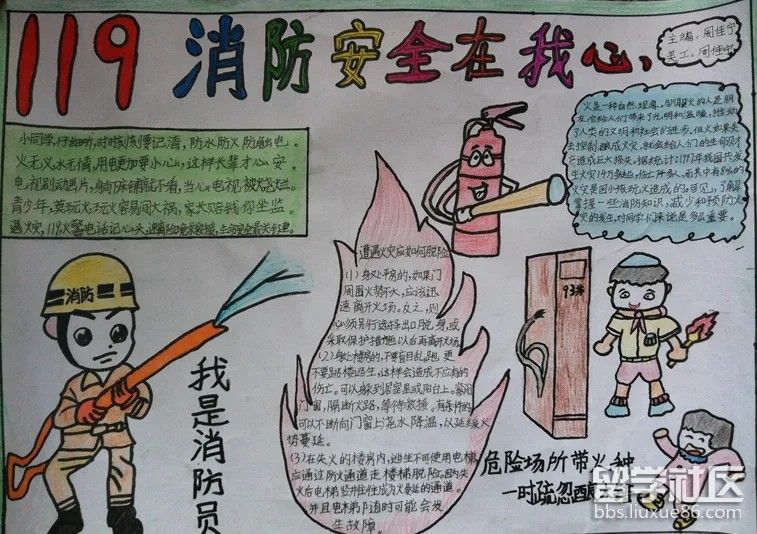 119 消防安全在我心
主编：周佳宁
美工：周佳宁
小同学，仔细听，时时刻刻要记清，防水防火防触电。
火无义，水无情，用电更加要小心，这样长辈才心安
电视剧动画片，躺床铺就不看，当心电视被烧烂。
青少年，莫玩火，玩火容易闯大祸，家长赔钱你坐监。
遇火灾，119火警电话记心头
火是一种自然现象。驯服了的火是朋
友，它给人们带来了光明和温暖，推动
了人类的文明和社会的进步。但火如果失
去控制，酿成火灾，就会给人们的生命财
产造成巨大损失。据统计：1997年我国共发
生火灾14万多起
火灾是因小孩玩火造成的。可见，了解
掌握一些消防知识，减少和预防火
灾的发生，对同学们来说是多么重要。
遭遇火灾应如何脱险
(1)身处平房的，如果门
周围火势不大，应该迅
速离开火场。反之，则
必须另行选择出口脱身，或
采取保护措施以后再离开火场。
(2)身处楼房的，不要盲目乱跑，更
不要跳楼逃生，这样会造成不应有的
伤亡。可以躲到居室里或阳台上。紧闭
门窗，隔断火路，等待救援。有条件的
可以不断向门窗上浇水降温，以延缓火
势蔓延。
(3)在失火的楼房内，逃生不可使用电梯
应通过防火通道走楼梯脱险。因为失
火后电梯竖井往往成为火焰的通道。
并且电梯随时可能会发
生故障。
消防
我是消防员
93#
危险场所带火种
一时疏忽酿
留学社区
bbs.liuxue86.com